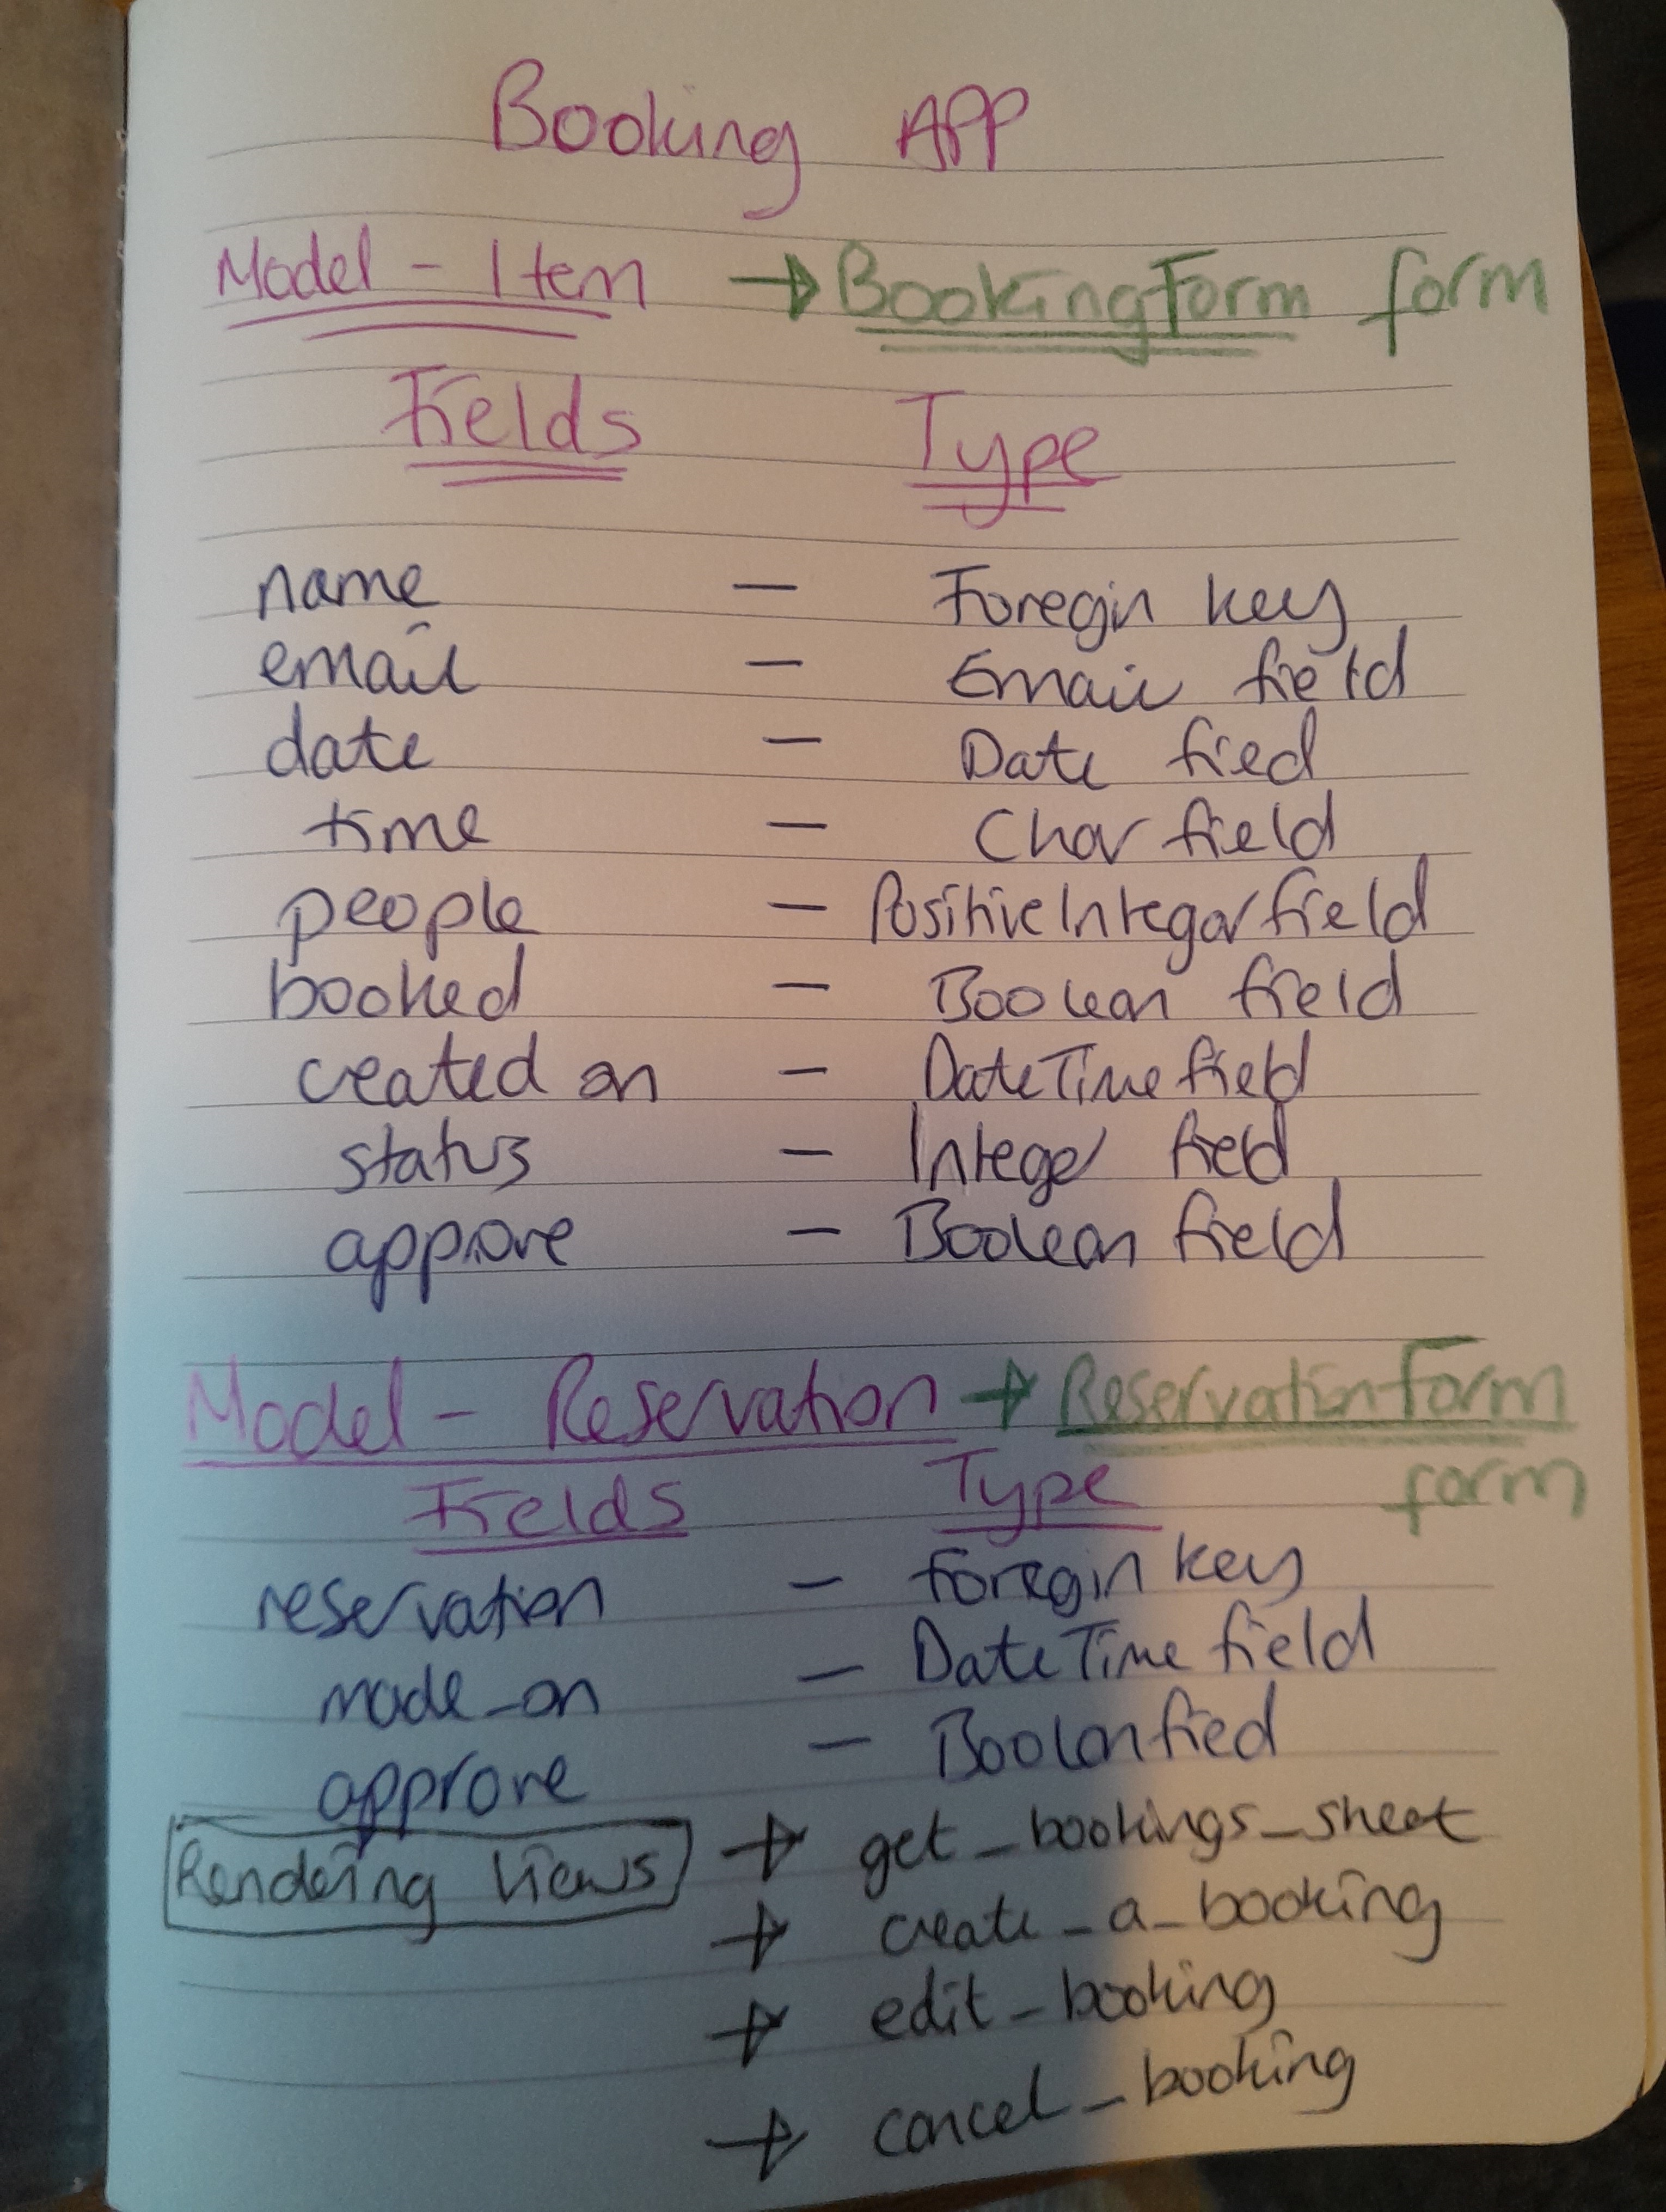 Booking APP
Model - Item → BookingForm form
Fields Type
name - Foregin key
email - Email field
date - Date fied
time - Char field
people - PositiveIntegerfield
booked - Boolean field
created on - DateTime field
status - Integer field
approve - Boolean field
Model - Reservation → ReservationForm
form
Fields Type
reservation - Foregin key
made_on - DateTime field
approve - Boolen fied
Rendering Views → get_bookings_sheet
→ create_a_booking
→ edit_booking
→ cancel_booking